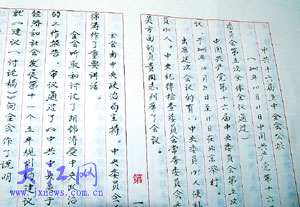 中共十六届五中全会公报
年10月11日中国共产党第十六
委员会第五次全体会议通过)
中国共产党第十六届中央委员会第五次
议,于 年10月8日至11日在北京举行。
出席这次会议的有,中央委员 人,候补
人。中央纪律检查委员会常务委员会委
关方面的负责同志列席了会议。
第一
全会由中央政治局主持。中央委员会
锦涛作了重要讲话。
全会听取和讨论了胡锦涛受中央政治
的工作报告,审议通过了《中共
经济和社会发展第十一个五年规划的建议
就《建议(讨论稿)》向全会作了说明
大江网
jxnews.com.cn